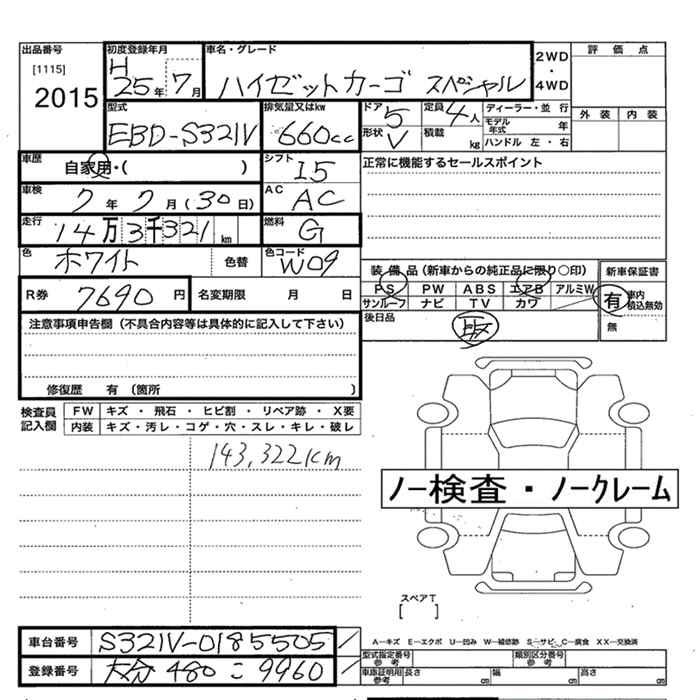 出品番号 初度登録年月 車名・グレード 2WD・4WD 評価点
[1115]
2015 H25年7月 ハイゼットカーゴ スペシャル 外装 内装
型式 排気量又はkw ドア 定員 ディーラー・並行
EBD-S321V 660cc 5 4人 モデル年式 年
形状 V 積載 kg ハンドル 左・右
車歴 自家用・( ) シフト I5 正常に機能するセールスポイント
車検 7年7月(30日) AC AC
走行 14万3千321km 燃料 G
色 ホワイト 色替 色コード W09
装備品(新車からの純正品に限り○印) 新車保証書
PS PW ABS エアB アルミW 有 車内積込無効
サンルーフ ナビ TV カワ 無
R券 7690円 名変期限 月 日 後日品
注意事項申告欄(不具合内容等は具体的に記入して下さい)
修復歴 有(箇所 )
検査員記入欄 FW キズ・飛石・ヒビ割・リペア跡・X要
内装 キズ・汚レ・コゲ・穴・スレ・キレ・破レ
143,322km
ノー検査・ノークレーム
スペアT
[ ]
車台番号 S321V-0185505
A―キズ E―エクボ U―凹み W―補修跡 S―サビ C―腐食 XX―交換済
型式指定番号 参考 類別区分番号 参考
登録番号 大分 480 こ 9960
車庫証明用 参考 長さ cm 幅 cm 高さ cm